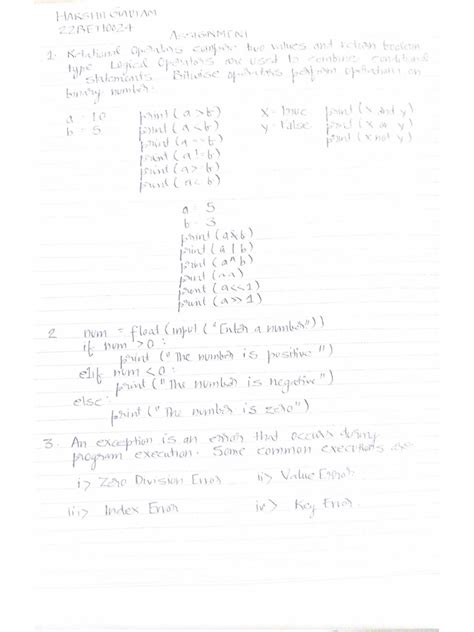 HARSHIL GAUTAM
22BET10024
ASSIGNMENT
1. Relational operators compare two values and return boolean
type. Logical operators are used to combine conditional
statements. Bitwise operators perform operations on
binary number.
a = 10 print (a > b) x = True print (x and y)
b = 5 print (a < b) y = False print (x or y)
print (a == b) print (x not y)
print (a != b)
print (a > b)
print (a < b)
a = 5
b = 3
print (a & b)
print (a | b)
print (a ^ b)
print (~a)
print (a << 1)
print (a >> 1)
2 num = float (input ("Enter a number"))
if num > 0 :
print ("The number is positive")
elif num < 0 :
print ("The number is negative")
else :
print ("The number is zero")
3. An exception is an error that occurs during
program execution. Some common are
i> Zero Division Error ii> Value Error
iii> Index Error iv> Key Error